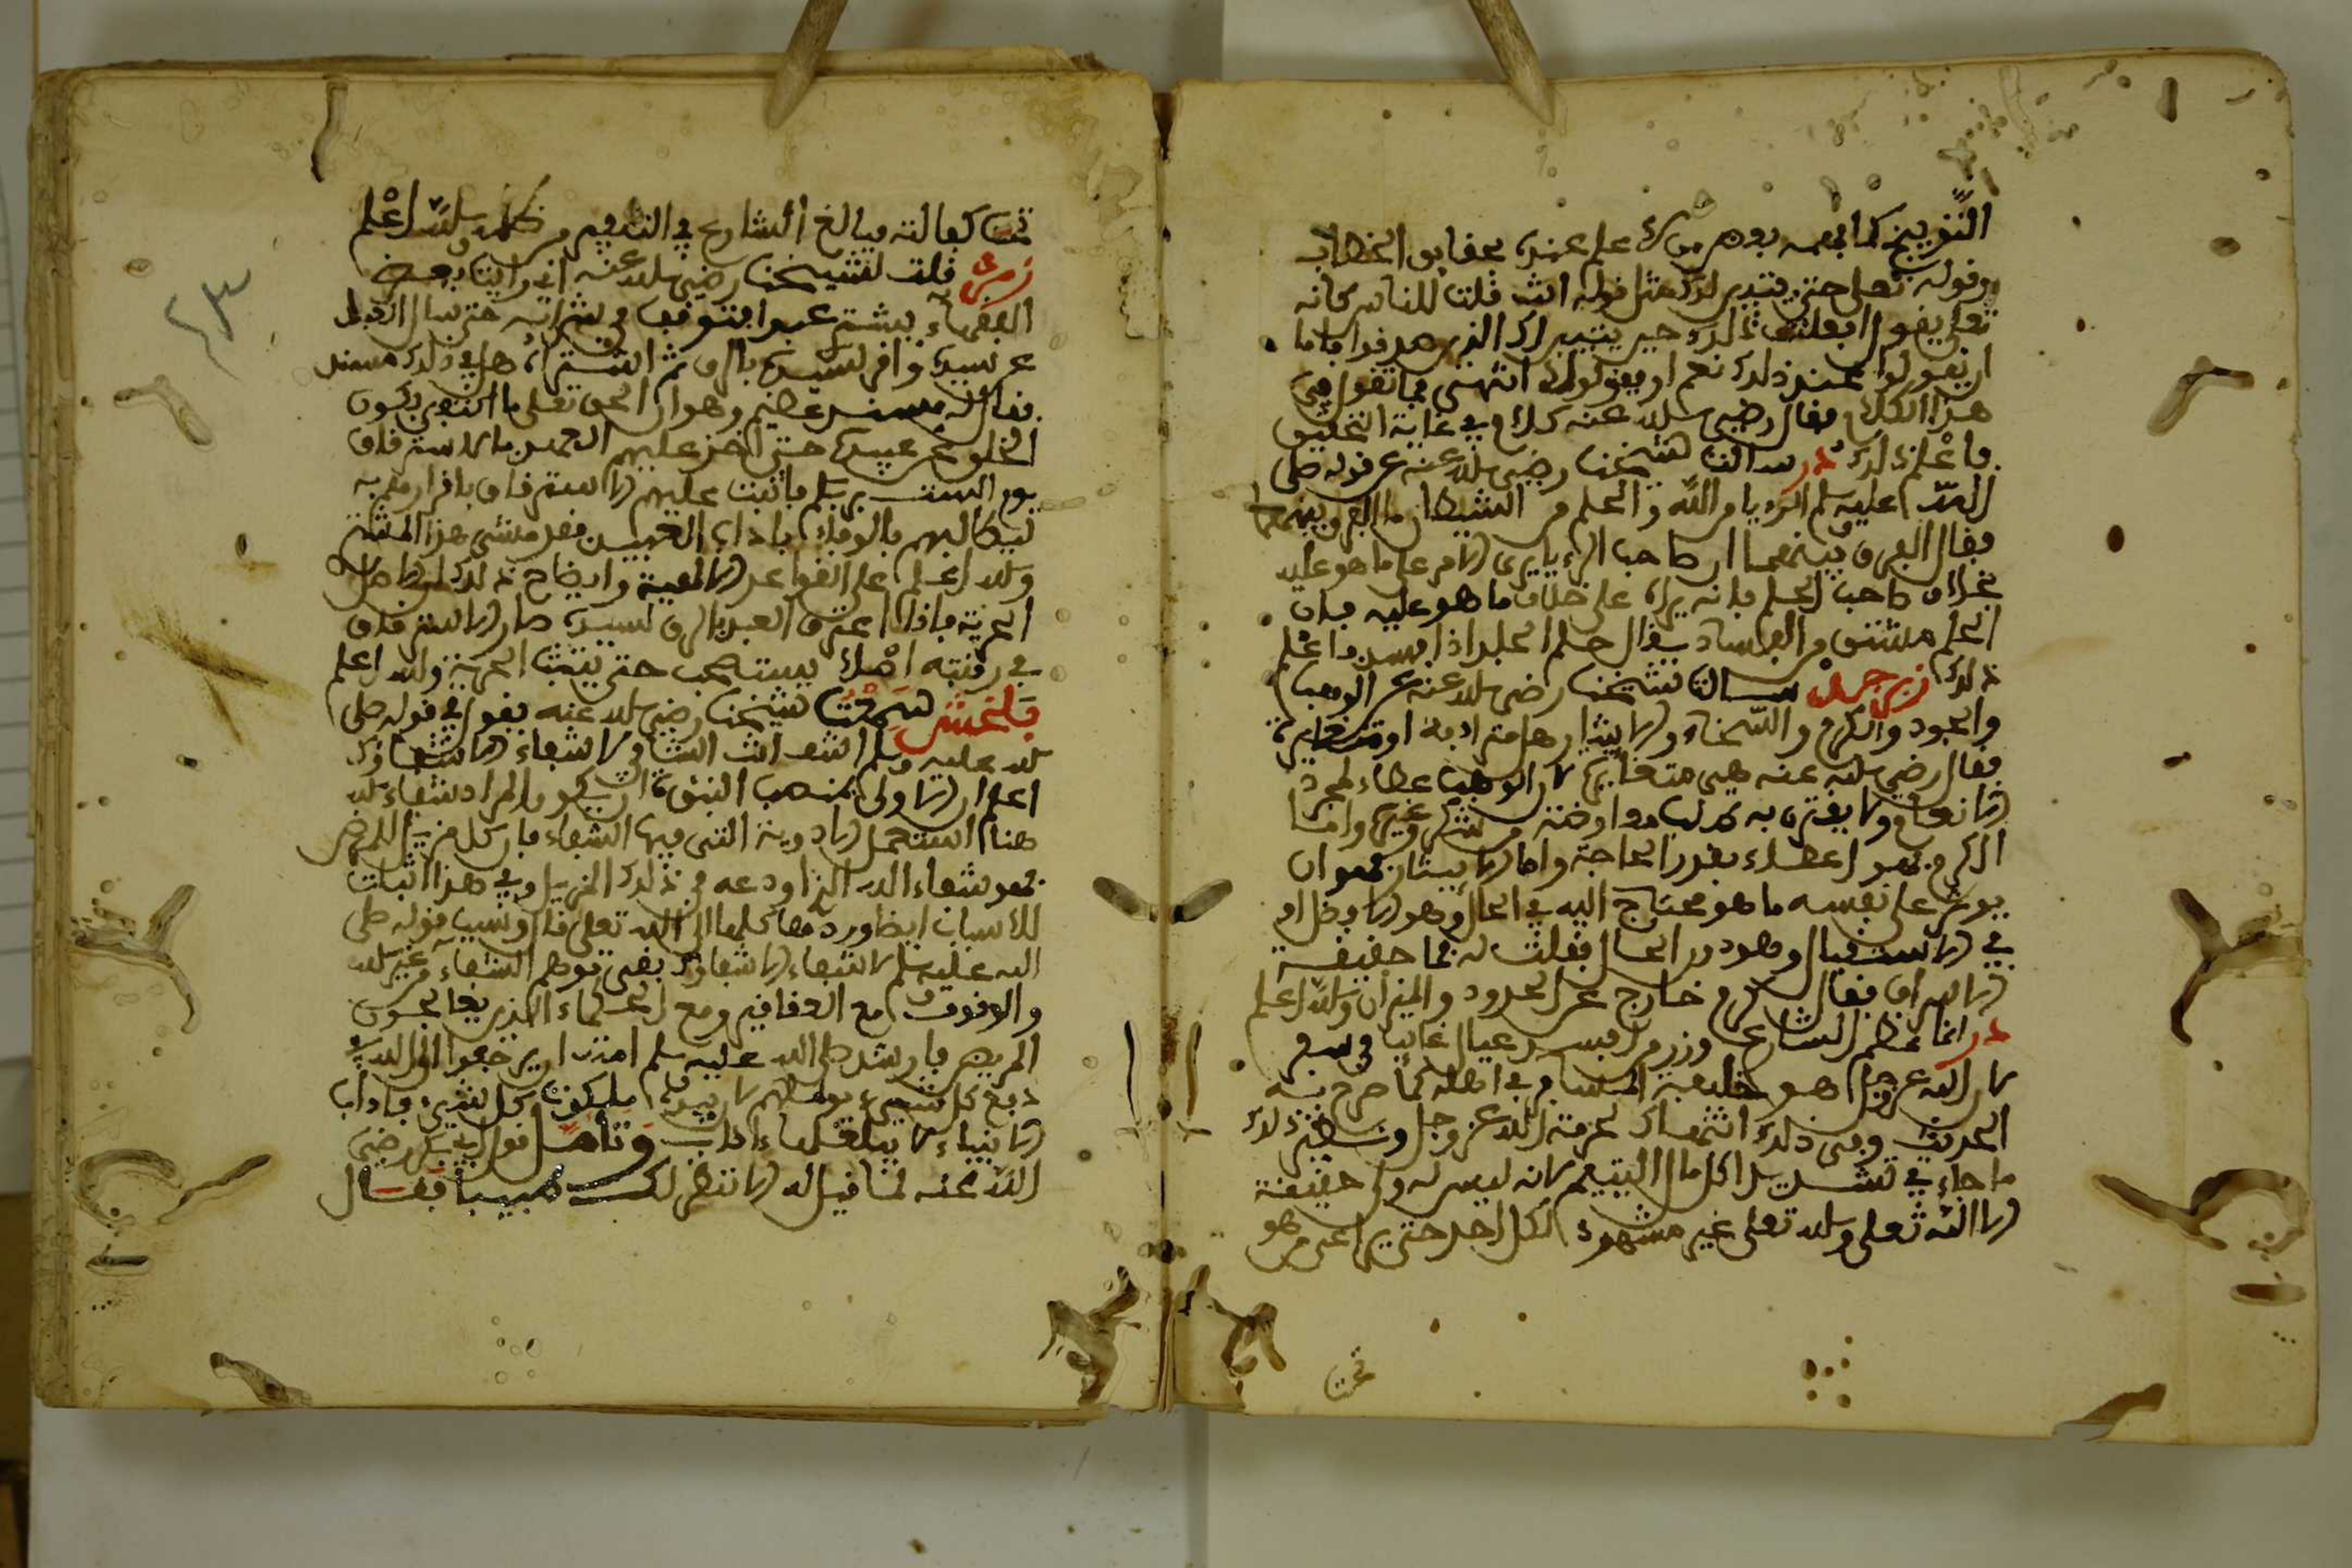 التوبيخ كما يفهمه بعض من لا علم عنده بحقايق الخطاب
وقوله تعلى حتى يتبين لك مثل قوله انت قلت للناس كانه
تعلى يقول افعلت ذلك حين يتبين لك الذين صدقوا فاما
ان يقول عند ذلك نعم او يقول لا انتهى فما تقول في
هذا الكلام فقال رضي الله عنه كلام في غاية التحقيق
فاعلم ذلك در سالت شيخنا رضي الله عنه عن قوله صلى
الله عليه وسلم الرءيا من الله والحلم من الشيطان ما الفرق بينهما
فقال الفرق بينهما ان صاحب الرءيا يرى الامر على ما هو عليه
بخلاف صاحب الحلم فانه يراه على خلاف ما هو عليه فان
الحلم مشتق من الفساد يقال حلم الجلد اذا فسد فاعلم
ذلك زبرجد سالت شيخنا رضي الله عنه عن الوهب
والجود والكرم والسخاء والايثار هل مترادفة او متغايرة
فقال رضي الله عنه هي متغايرة لان الوهب عطاء لمجرد
الانعام ولا يقترن به طلب معاوضة من شكر وغيره واما
الكرم فهو اعطاء بقدر الحاجة واما الايثار فهو ان
يوثر على نفسه ما هو محتاج اليه في الحال وهو الافضل او
في الاستقبال وهو دون الحال فقلت له فما حقيقة
الاسراف فقال كرم خارج عن الحدود والميزان والله اعلم
در انما عظم الشارع وزر من افسد عيال غائب في سفر
لان الله عز وجل هو خليفة المسافر في اهله كما صرح به
الحديث وفي ذلك انتهاك لحرمة الله عز وجل ونظير ذلك
ما جاء في تشديد اكل مال اليتيم لانه ليس له ولي حقيقة
الا الله تعلى والله تعلى غير مشهود لكل احد حتى يراعى من هو
تحت
تحت كفالته فبالغ الشارع في التنفير من ظلمه والله اعلم
زمرد قلت لشيخنا رضي الله عنه اني رايت بعض
الفقهاء يشتري عبدا فتوقف في شرائه حتى سال العبد
عن سيده واقر لسيده بالرق ثم اشتراه هل في ذلك مستند
فقال له مستند عظيم وهو ان الحق تعلى ما
الخلق عن عبيده حتى اخذ عليهم العهد بالاسترقاق
يوم الست بربكم فاثبت عليهم الاسترقاق باقرارهم به
ليطالبهم بالوفاء باداء العهد فقد مشى هذا المشتري
والله اعلم على القواعد الالهية وايضاح ذلك ان الاصل
الحرية فاذا اعترف العبد بالرق لسيده صار الاسترقاق
في رقبته اصلا يستصحب حتى تثبت الحرية والله اعلم
بلخش سمعت شيخنا رضي الله عنه يقول في قوله صلى
الله عليه وسلم اشف انت الشافي لا شفاء الا شفاؤك
اعلم ان الاولى بمنصب النبوة ان يكون المراد شفاء الله
هنا استعمل الادوية التي فيها الشفاء فان كل مزيل للمرض
فهو شفاء الله الذي اودعه في ذلك المزيل وفي هذا اثبات
للاسباب ايضا وردها كلها الى الله تعلى قال وسبب قوله صلى
الله عليه وسلم لا شفاء الا شفاؤك نفى توهم الشفاء من غير الله
والوقوف مع العقاقير ومع الحكماء الذين يعالجون
المريض فارشد صلى الله عليه وسلم امته ان يرجعوا الى الله في
دفع كل شيء يوملهم لان بيده ملكوت كل شيء فاداب
الانبياء لا يبلغها اداب وتامل قول ابي بكر رضي
الله عنه لما قيل له الا ننظر لك طبيبا فقال